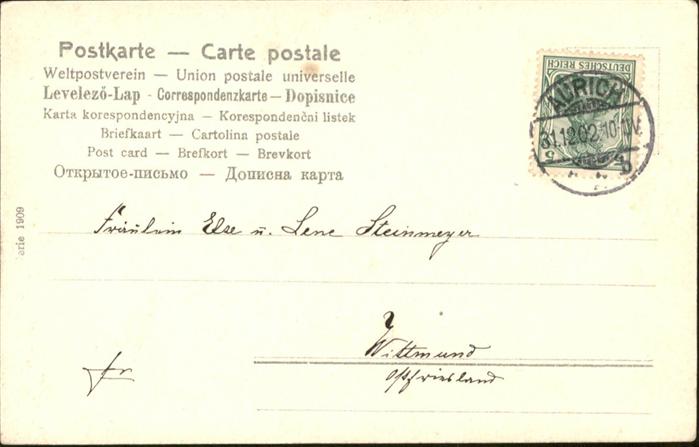 Postkarte — Carte postale
Weltpostverein — Union postale universelle
Levelező-Lap - Correspondenzkarte — Dopisnice
Karta korespondencyjna — Korespondenční listek
Briefkaart — Cartolina postale
Post card — Brefkort — Brevkort
Открытое-письмо — Дописна карта
DEUTSCHES REICH
AURICH
31.12.02. 10-11V.
5
erie 1909
Fräulein Else u. Lene Steinmeyer
Wittmund
Ostfriesland
fr